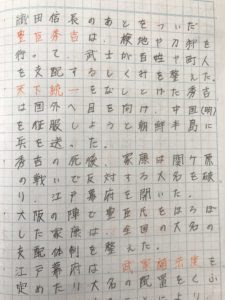 織田信長のあとをついだ
豊臣秀吉は、検地や刀狩を
行って、武士が百姓や町人
を支配するしくみを整えた。
天下統一をなしとげた秀吉
は国外へ目を向け、中国(明)
を征服しようと朝鮮半島に
兵を送った。
秀吉の死後、家康は関ヶ原
の戦いで反対する大名を破
り、江戸幕府を開いた。
大阪の陣で豊臣氏をほろぼ
した家康は、全国の大名の
支配体制を整えた。
江戸幕府は、武家諸法度を
定めたり大名の配置をくふ